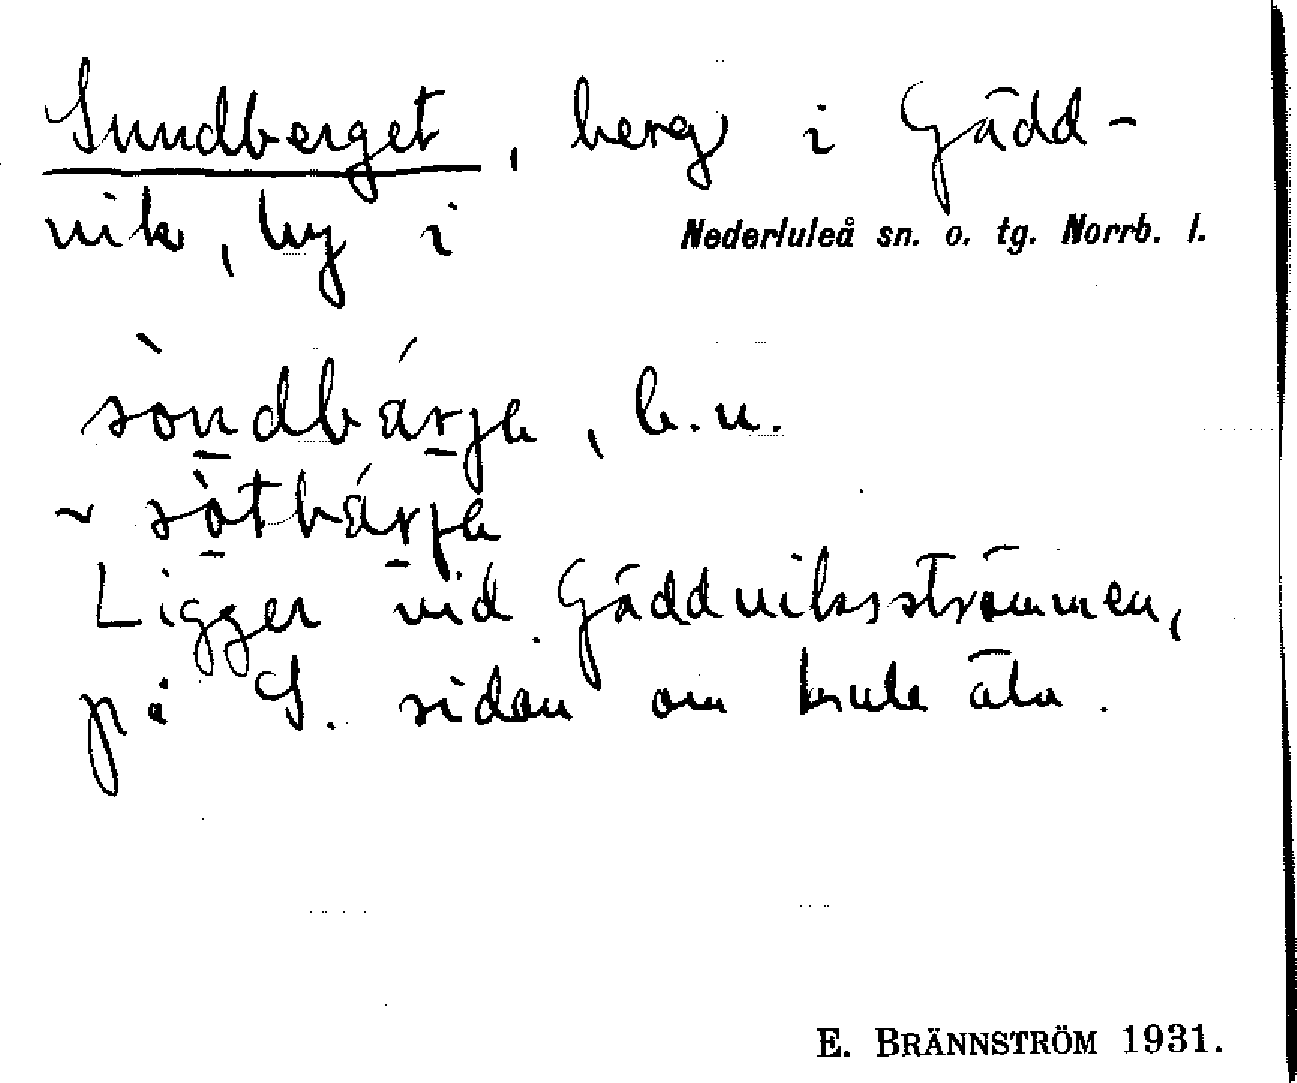 Sundberget, berg i Gädd-
vik, by i Nederluleå sn. o. tg. Norrb. l.
sòndbárje, b.n.
~ sòtbárje
Ligger vid Gäddviksströmmen,
på S. sidan om Lule älv.
E. BRÄNNSTRÖM 1931.